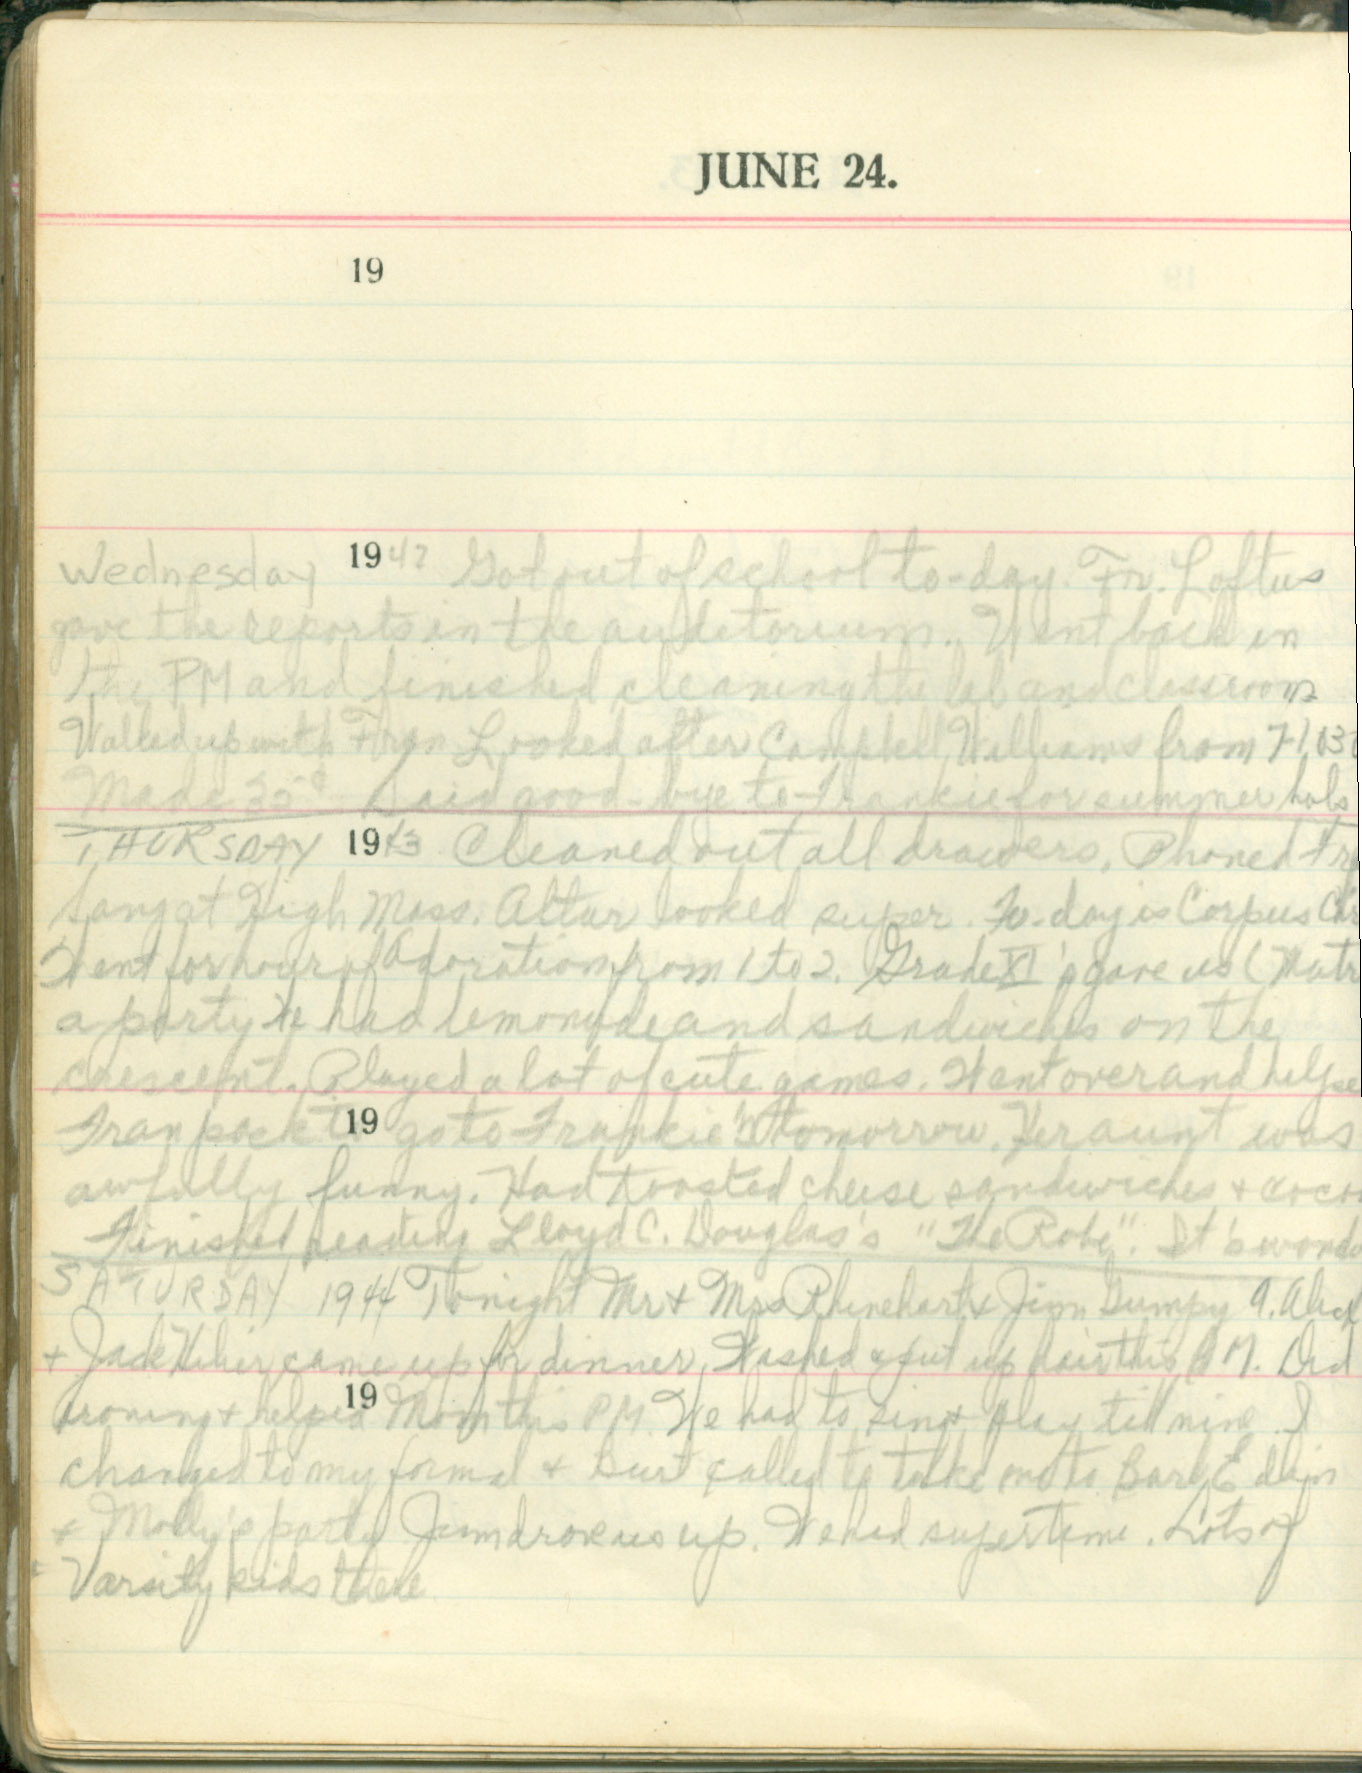 JUNE 24.
19
Wednesday 1942 Got out of school to-day. Fr. Loftus
gave the reports in the auditorium. Went back in
the PM and finished cleaning the lab and classroom
Walked up with Fran. Looked after Campbell Williams from 7-11.30
Made 35¢ Said good-bye to Frankie for summer hols
THURSDAY 1943 Cleaned out all drawers. Phoned Fr
Sang at High Mass. Altar looked super. To-day is Corpus Chr
Went for hour of Adoration from 1 to 2. Grade XI's gave us (Matr
a party We had lemonade and sandwiches on the
crescent. Played a lot of cute games. Went over and helpe
Fran pack to 19 go to Frankie's tomorrow. Her aunt was
awfully funny. Had toasted cheese sandwiches + coco
Finished reading Lloyd C. Douglas's "The Robe". It's wond
SATURDAY 1944 Tonight Mr + Mrs Rhinehart + Jim Gumpy A. Alice
+ Jack came up for dinner. Washed + put up hair this AM. Did
ironing + helped 19 Mom this PM. We had to sing + play till nine. I
changed to my formal + Burt called to take me to Barg
+ Molly's party Jim drove us up. We had super time. Lots of
Varsity kids there